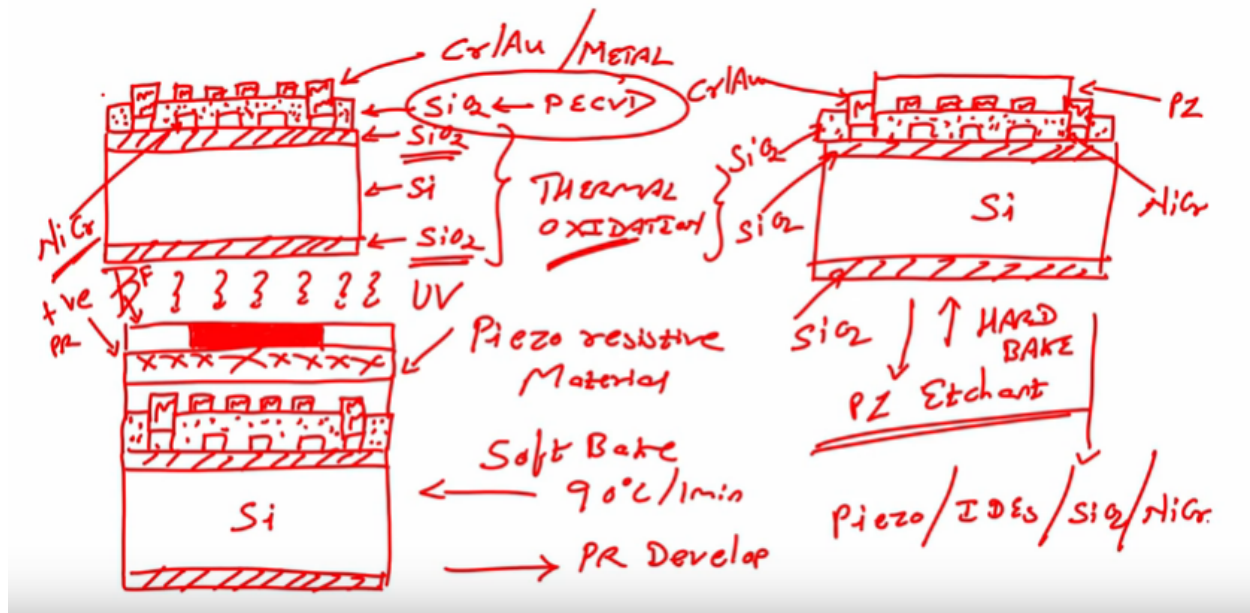 Cr/Au /METAL
SiO2 ← PECVD
SiO2
Si
SiO2
THERMAL
OXIDATION
NiCr
BF
UV
+ve
PR
Piezo resistive
Material
M M M M M M
Soft Bake
90°C/1min
Si
PR Develop
Cr/Au
PZ
SiO2
SiO2
Si
NiCr
SiO2
HARD
BAKE
PZ Etchant
Piezo/IDEs/SiO2/NiCr.